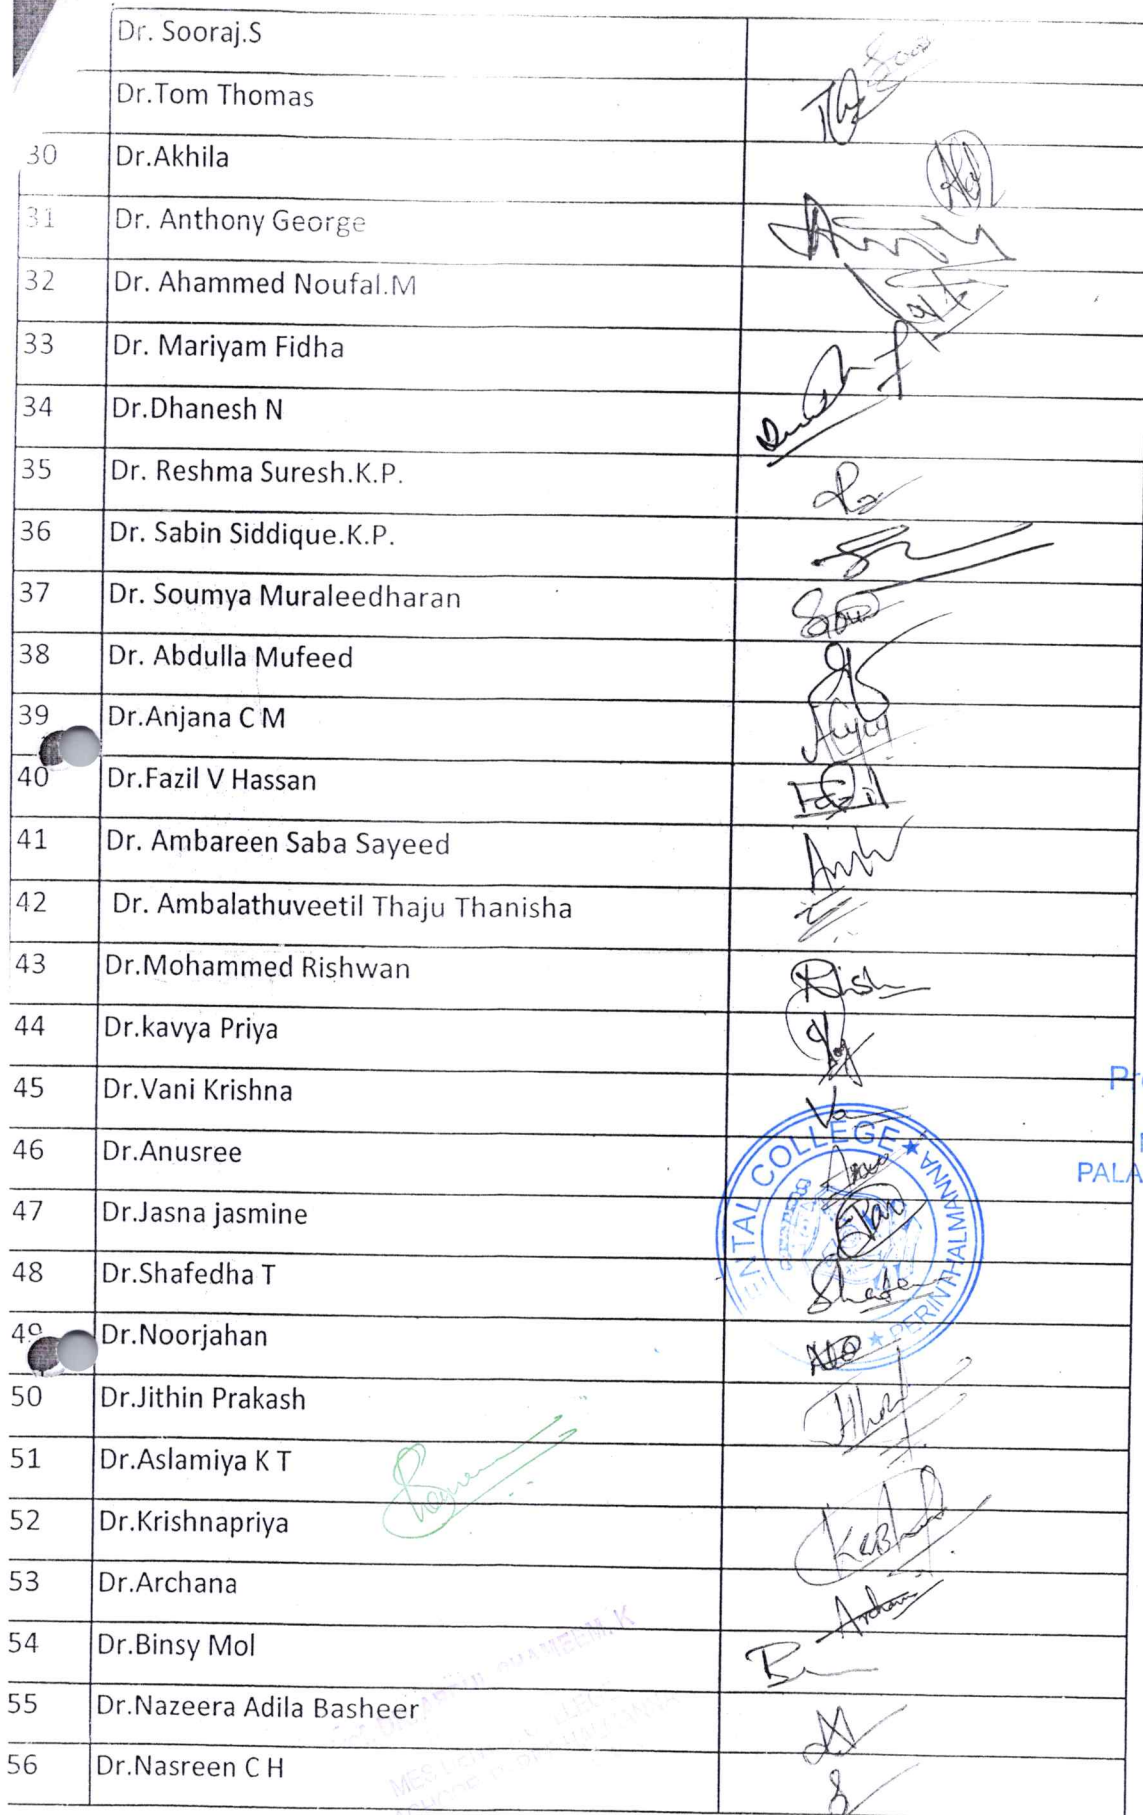 Dr. Sooraj.S
Dr.Tom Thomas
30 Dr.Akhila
31 Dr. Anthony George
32 Dr. Ahammed Noufal.M
33 Dr. Mariyam Fidha
34 Dr.Dhanesh N
35 Dr. Reshma Suresh.K.P.
36 Dr. Sabin Siddique.K.P.
37 Dr. Soumya Muraleedharan
38 Dr. Abdulla Mufeed
39 Dr.Anjana C M
40 Dr.Fazil V Hassan
Fazil
41 Dr. Ambareen Saba Sayeed
42 Dr. Ambalathuveetil Thaju Thanisha
43 Dr.Mohammed Rishwan
Rish
44 Dr.kavya Priya
45 Dr.Vani Krishna
46 Dr.Anusree
ENTAL COLLEGE ★ PERINTHALMANNA ★
PALA
47 Dr.Jasna jasmine
48 Dr.Shafedha T
49 Dr.Noorjahan
50 Dr.Jithin Prakash
51 Dr.Aslamiya K T
52 Dr.Krishnapriya
53 Dr.Archana
Archana
54 Dr.Binsy Mol
55 Dr.Nazeera Adila Basheer
56 Dr.Nasreen C H